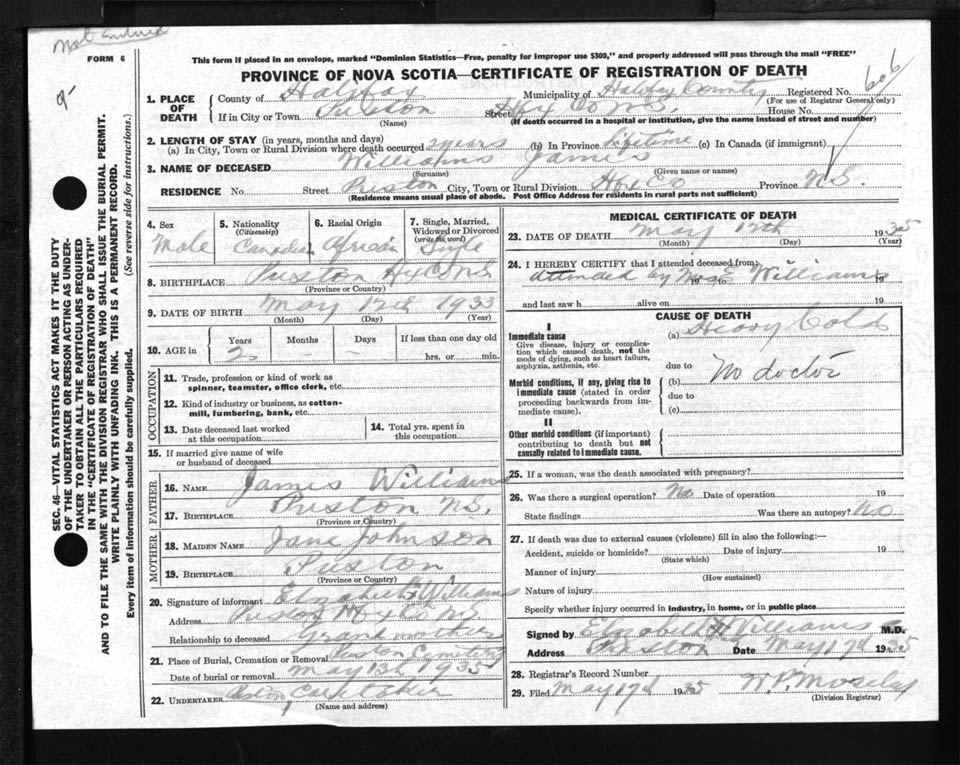 Not Indexed
FORM 6
This form if placed in an envelope, marked "Dominion Statistics—Free, penalty for improper use $300," and properly addressed will pass through the mail "FREE"
PROVINCE OF NOVA SCOTIA—CERTIFICATE OF REGISTRATION OF DEATH
606
1. PLACE OF DEATH
County of Halifax Municipality of Halifax County Registered No.
(For use of Registrar General only)
If in City or Town Preston Street Hfx Co N.S. House No.
(Name) (If death occurred in a hospital or institution, give the name instead of street and number)
2. LENGTH OF STAY (in years, months and days)
(a) In City, Town or Rural Division where death occurred 2 years (b) In Province lifetime (c) In Canada (if immigrant)
3. NAME OF DECEASED Williams James
(Surname) (Given name or names)
RESIDENCE No. Street Preston City, Town or Rural Division Hfx Co Province N.S.
(Residence means usual place of abode. Post Office Address for residents in rural parts not sufficient)
4. Sex Male
5. Nationality (Citizenship) Canadian
6. Racial Origin African
7. Single, Married, Widowed or Divorced (write the word) Single
8. BIRTHPLACE Preston Hfx Co N.S.
(Province or Country)
9. DATE OF BIRTH May 12th 1933
(Month) (Day) (Year)
10. AGE in Years Months Days If less than one day old
2 – – hrs. or min.
OCCUPATION
11. Trade, profession or kind of work as spinner, teamster, office clerk, etc.
12. Kind of industry or business, as cotton-mill, lumbering, bank, etc.
13. Date deceased last worked at this occupation
14. Total yrs. spent in this occupation
15. If married give name of wife or husband of deceased
FATHER
16. NAME James Williams
17. BIRTHPLACE Preston N.S.
(Province or Country)
MOTHER
18. MAIDEN NAME Jane Johnson
19. BIRTHPLACE Preston
(Province or Country)
20. Signature of informant Elizabeth Williams
Address Preston Hfx Co N.S.
Relationship to deceased Grandmother
21. Place of Burial, Cremation or Removal Preston Cemetery
Date of burial or removal May 13th 1935
22. UNDERTAKER Preston Caretaker
(Name and address)
MEDICAL CERTIFICATE OF DEATH
23. DATE OF DEATH May 12th 1935
(Month) (Day) (Year)
24. I HEREBY CERTIFY that I attended deceased from:
attended by Mrs E Williams
19 to 19
and last saw h alive on 19
CAUSE OF DEATH
I
Immediate cause (a) Heavy Cold
Give disease, injury or complication which caused death, not the mode of dying, such as heart failure, asphyxia, asthenia, etc.
due to
Morbid conditions, if any, giving rise to immediate cause (stated in order proceeding backwards from immediate cause).
(b) No doctor
due to
(c)
II
Other morbid conditions (if important) contributing to death but not causally related to immediate cause.
25. If a woman, was the death associated with pregnancy?
26. Was there a surgical operation? No Date of operation 19
State findings Was there an autopsy? No
27. If death was due to external causes (violence) fill in also the following:—
Accident, suicide or homicide? Date of injury 19
(State which)
Manner of injury
(How sustained)
Nature of injury
Specify whether injury occurred in industry, in home, or in public place
Signed by Elizabeth Williams M.D.
Address Preston Date May 17th 1935
28. Registrar's Record Number
29. Filed May 17th 1935
(Division Registrar)
SEC. 46—VITAL STATISTICS ACT MAKES IT THE DUTY OF THE UNDERTAKER OR PERSON ACTING AS UNDERTAKER TO OBTAIN ALL THE PARTICULARS REQUIRED IN THE "CERTIFICATE OF REGISTRATION OF DEATH" AND TO FILE THE SAME WITH THE DIVISION REGISTRAR WHO SHALL ISSUE THE BURIAL PERMIT.
WRITE PLAINLY WITH UNFADING INK. THIS IS A PERMANENT RECORD.
Every item of information should be carefully supplied. (See reverse side for instructions.)